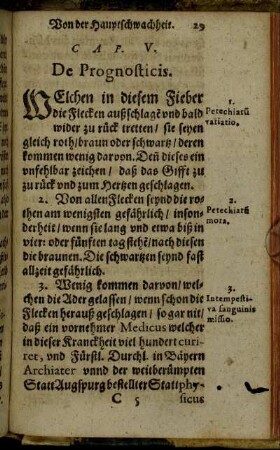 Von der Hauptschwachheit. 29
CAP. V.
De Prognosticis.
WElchen in diesem Fieber
die Flecken außschlagẽ vnd bald
wider zu rück tretten / sie seyen
gleich roth / braun oder schwartz / deren
kommen wenig darvon. Deñ dieses ein
vnfehlbar zeichen / daß das Gifft zu
zu rück vnd zum Hertzen geschlagen.
1.
Petechiarũ
variatio.
2. Von allen Flecken seynd die ro-
then am wenigsten gefährlich / inson-
derheit / wenn sie lang vnd etwa biß in
vier: oder fünfften tag stehẽ / nach diesen
die braunen. Die schwartzen seynd fast
allzeit gefährlich.
2.
Petechiarũ
mora.
3. Wenig kommen darvon / wel-
chen die Ader gelassen / wenn schon die
Flecken herauß geschlagen / so gar nit /
daß ein vornehmer Medicus welcher
in dieser Kranckheit viel hundert curi-
ret, vnd Fürstl. Durchl. in Bäyern
Archiater vnnd der weitberümpten
Statt Augspurg bestellter Stattphy-
3.
Intempesti-
va sanguinis
missio.
C 5 sicus